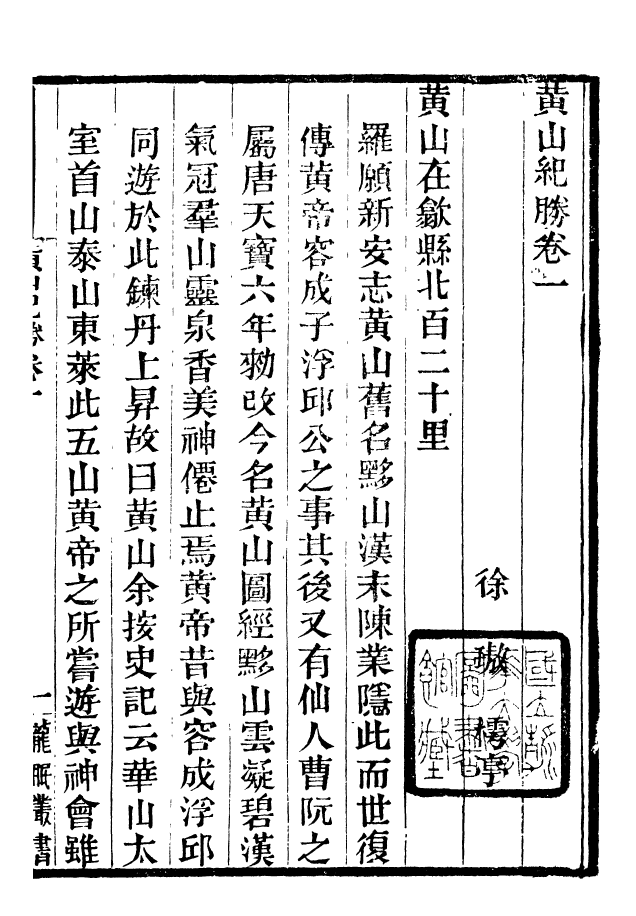 黃山紀勝卷一
徐璈樗亭
黃山在歙縣北百二十里
羅願新安志黃山舊名黟山漢末陳業隱此而世復
傳黃帝容成子浮邱公之事其後又有仙人曹阮之
屬唐天寶六年勑改今名黃山圖經黟山雲凝碧漢
氣冠羣山靈泉香美神僊止焉黃帝昔與容成浮邱
同遊於此鍊丹上昇故曰黃山余按史記云華山太
室首山泰山東萊此五山黃帝之所嘗遊與神會雖
黃山紀勝卷一
一
龍眠叢書